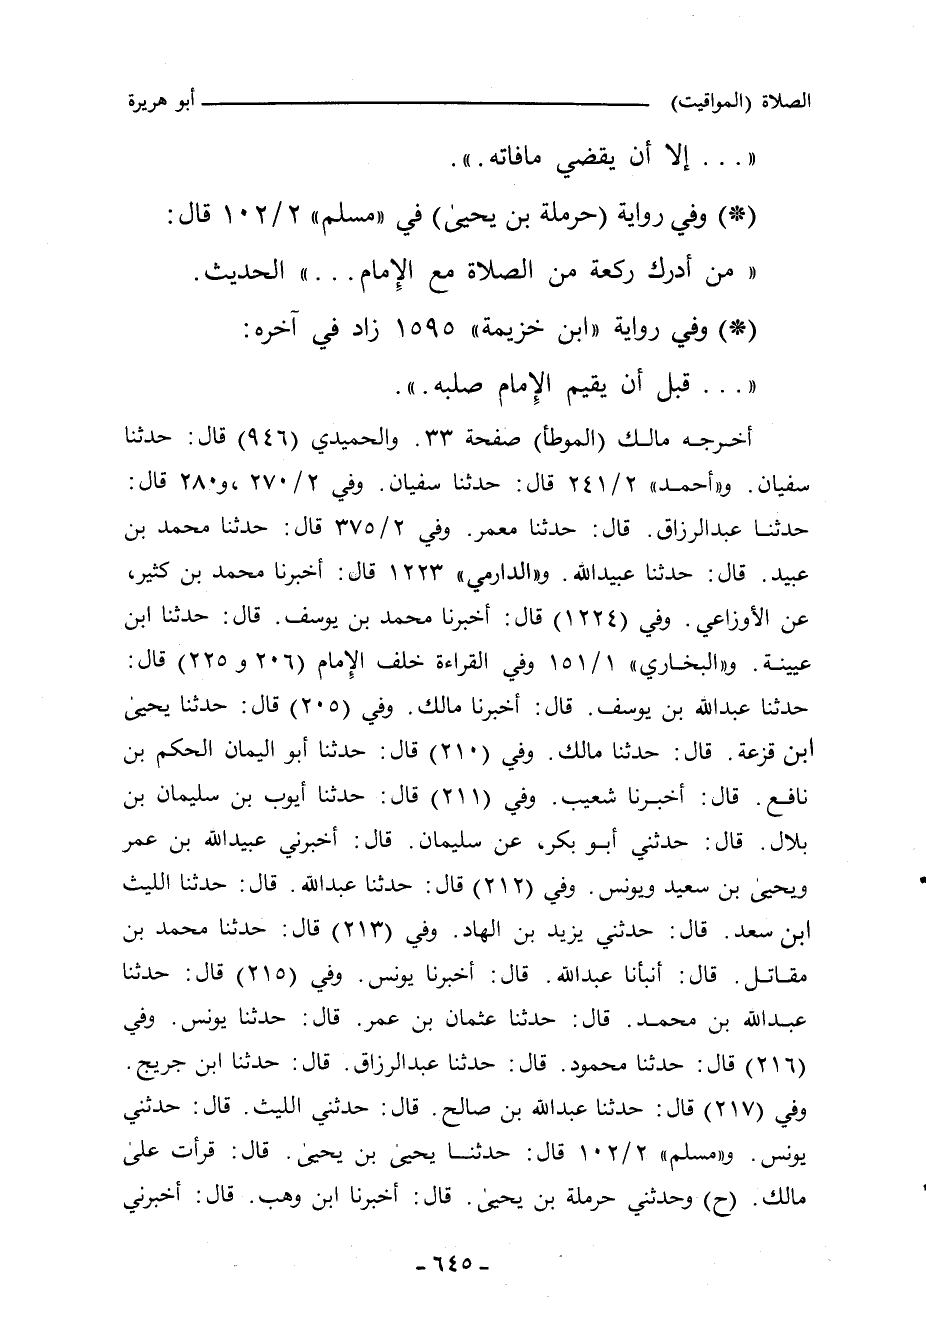 الصلاة (المواقيت) ــــــــــــــــــــــــــــ أبو هريرة
« . . . إلا أن يقضي مافاته . ».
(*) وفي رواية (حرملة بن يحيىٰ) في «مسلم» ١٠٢/٢ قال:
« من أدرك ركعة من الصلاة مع الإمام . . . » الحديث .
(*) وفي رواية «ابن خزيمة» ١٥٩٥ زاد في آخره:
« . . . قبل أن يقيم الإمام صلبه . ».
أخرجه مالك (الموطأ) صفحة ٣٣. والحميدي (٩٤٦) قال: حدثنا
سفيان. و«أحمد» ٢٤١/٢ قال: حدثنا سفيان. وفي ٢٧٠/٢ ،و٢٨٠ قال:
حدثنا عبدالرزاق. قال: حدثنا معمر. وفي ٣٧٥/٢ قال: حدثنا محمد بن
عبيد. قال: حدثنا عبيدالله. و«الدارمي» ١٢٢٣ قال: أخبرنا محمد بن كثير،
عن الأوزاعي. وفي (١٢٢٤) قال: أخبرنا محمد بن يوسف. قال: حدثنا ابن
عيينة. و«البخاري» ١٥١/١ وفي القراءة خلف الإمام (٢٠٦ و ٢٢٥) قال:
حدثنا عبدالله بن يوسف. قال: أخبرنا مالك. وفي (٢٠٥) قال: حدثنا يحيىٰ
ابن قزعة. قال: حدثنا مالك. وفي (٢١٠) قال: حدثنا أبو اليمان الحكم بن
نافع. قال: أخبرنا شعيب. وفي (٢١١) قال: حدثنا أيوب بن سليمان بن
بلال. قال: حدثني أبو بكر، عن سليمان. قال: أخبرني عبيدالله بن عمر
ويحيىٰ بن سعيد ويونس. وفي (٢١٢) قال: حدثنا عبدالله. قال: حدثنا الليث
ابن سعد. قال: حدثني يزيد بن الهاد. وفي (٢١٣) قال: حدثنا محمد بن
مقاتل. قال: أنبأنا عبدالله. قال: أخبرنا يونس. وفي (٢١٥) قال: حدثنا
عبدالله بن محمد. قال: حدثنا عثمان بن عمر. قال: حدثنا يونس. وفي
(٢١٦) قال: حدثنا محمود. قال: حدثنا عبدالرزاق. قال: حدثنا ابن جريج.
وفي (٢١٧) قال: حدثنا عبدالله بن صالح. قال: حدثني الليث. قال: حدثني
يونس. و«مسلم» ١٠٢/٢ قال: حدثنا يحيىٰ بن يحيىٰ. قال: قرأت علىٰ
مالك. (ح) وحدثني حرملة بن يحيىٰ. قال: أخبرنا ابن وهب. قال: أخبرني
- ٦٤٥ -